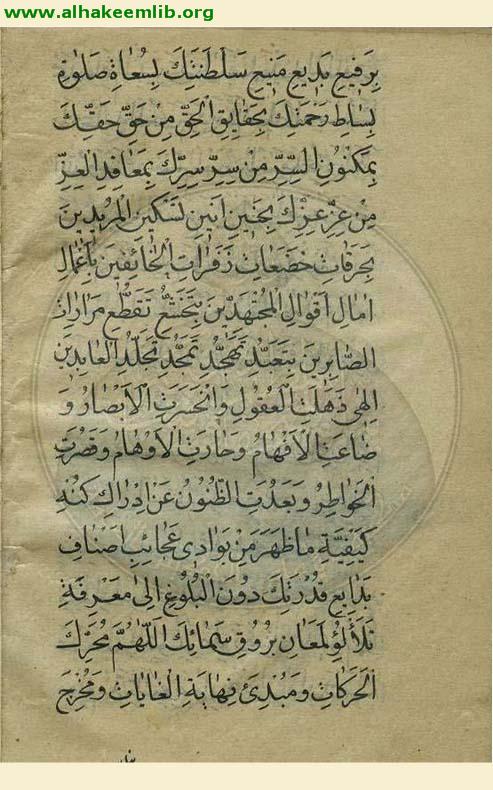 www.alhakeemlib.org
بِرَفِيعِ بَدِيعِ مَنِيعِ سَلْطَنَتِكَ بِسُعَاةِ صَلَوٰةِ
بِسَاطِ رَحْمَتِكَ بِحَقَايِقِ الْحَقِّ مِنْ حَقِّ حَقِّكَ
بِمَكْنُونِ السِّرِّ مِنْ سِرِّ سِرِّكَ بِمَعَاقِدِ الْعِزِّ
مِنْ عِزِّ عِزِّكَ بِحَنِينِ اَنِينِ تَسْكِينِ الْمُرِيدِينَ
بِحَرَقَاتِ خَضَعَاتِ زَفَرَاتِ الْخَائِفِينَ بِاَعْمَالِ
اٰمَالِ اَقْوَالِ الْمُجْتَهِدِينَ بِتَخَشُّعِ تَقَطُّعِ مَرَارَاتِ
الصَّابِرِينَ بِتَعَبُّدِ تَهَجُّدِ تَمَجُّدِ تَجَلُّدِ الْعَابِدِينَ
اِلٰهِى ذَهَلَتِ الْعُقُولِ وَانْحَسَرَتِ الْاَبْصَارُ وَ
ضَاعَتِ الْاَفْهَامُ وَحَارَتِ الْاَوْهَامُ وَقَصُرَتِ
الْخَوَاطِرُ وَبَعُدَتِ الظُّنُونُ عَنْ اِدْرَاكِ كُنْهِ
كَيْفِيَّةِ مَا ظَهَرَ مِنْ بَوَادِى عَجَائِبِ اَصْنَافِ
بَدَايِعِ قُدْرَتِكَ دُونَ الْبُلُوغِ اِلٰى مَعْرِفَةِ
تَلَأْلُؤِ لَمَعَانِ بُرُوقِ سَمَائِكَ اَللّٰهُمَّ مُحَرِّكَ
الْحَرَكَاتِ وَمُبْدِئَ نِهَايَةِ الْغَايَاتِ وَمُخْرِجَ